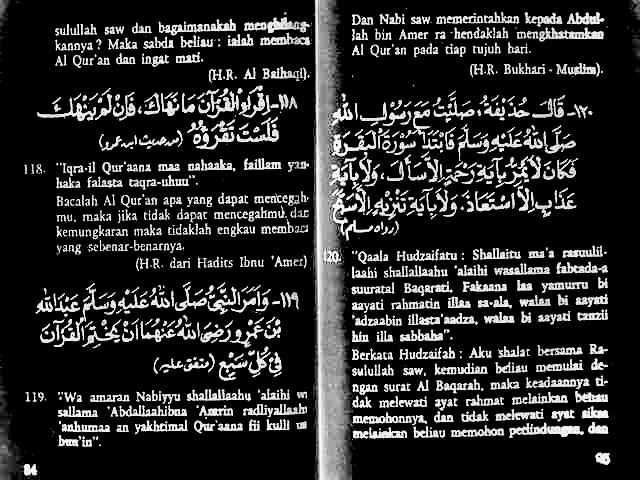 sulullah saw dan bagaimanakah menghilang-
kannya? Maka sabda beliau : ialah membaca
Al Qur'an dan ingat mati.
(H.R. Al Baihaqi).
١١٨- اِقْرَاُوا الْقُرْآنَ مَا نَهَاكَ، فَاِنْ لَمْ يَنْهَكَ
فَلَسْتَ تَقْرَؤُهُ (من حديث ابن عمرو)
118. "Iqra-il Qur'aana maa nahaaka, faillam yan-
haka falasta taqra-uhuu".
Bacalah Al Qur'an apa yang dapat mencegah-
mu, maka jika tidak dapat mencegahmu dari
kemungkaran maka tidaklah engkau membaca
yang sebenar-benarnya.
(H.R. dari Hadits Ibnu 'Amer)
١١٩- وَاَمَرَ النَّبِيُّ صَلَّى اللهُ عَلَيْهِ وَسَلَّمَ عَبْدَ اللهِ
بْنَ عَمْرٍو رَضِىَ اللهُ عَنْهُمَا اَنْ يَخْتِمَ الْقُرْآنَ
فِى كُلِّ سَبْعٍ (متفق عليه)
119. "Wa amaran Nabiyyu shallallaahu 'alaihi wa
sallama 'Abdallaahibna 'Amrin radliyallaahu
'anhumaa an yakhtimal Qur'aana fii kulli
84
Dan Nabi saw memerintahkan kepada Abdul-
lah bin Amer ra hendaklah mengkhatamkan
Al Qur'an pada tiap tujuh hari.
(H.R. Bukhari - Muslim).
١٢٠- قَالَ حُذَيْفَةُ: صَلَّيْتُ مَعَ رَسُولِ اللهِ
صَلَّى اللهُ عَلَيْهِ وَسَلَّمَ فَابْتَدَأَ سُورَةَ الْبَقَرَةِ
فَكَانَ لَا يَمُرُّ بِآيَةِ رَحْمَةٍ اِلَّا سَأَلَ، وَلَا بِآيَةِ
عَذَابٍ اِلَّا اسْتَعَاذَ، وَلَا بِآيَةِ تَنْزِيْهٍ اِلَّا سَبَّحَ
(رواه مسلم)
120. "Qaala Hudzaifatu : Shallaitu ma'a rasuulil-
laahi shallallaahu 'alaihi wasallama fabtada-a
suuratal Baqarati, Fakaana laa yamurru bi
aayati rahmatin illaa sa-ala, walaa bi aayati
'adzaabin illasta'aadza, walaa bi aayati tanzii
hin illa sabbaha".
Berkata Hudzaifah : Aku shalat bersama Ra-
sulullah saw, kemudian beliau memulai de-
ngan surat Al Baqarah, maka keadaannya ti-
dak melewati ayat rahmat melainkan beliau
memohonnya, dan tidak melewati ayat siksa
melainkan beliau memohon perlindungan, dan